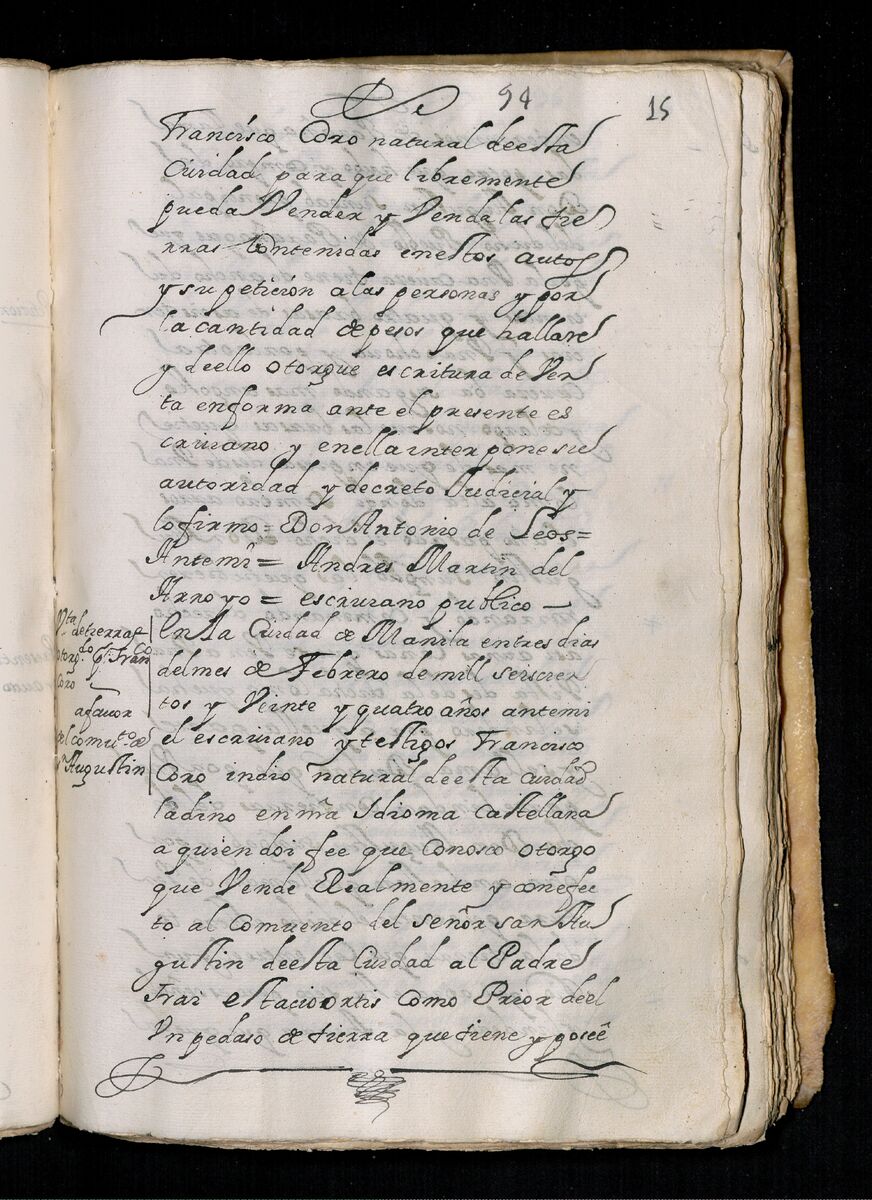 94
15
Francisco Coro natural deesta
Ciudad para que libremente
pueda Vender y Venda las tie
rras Contenidas enestos autos
y su petición a las personas y por
la cantidad de pesos que hallare
y deello otorgue escritura de Ven
ta enforma ante el presente es
criuano y enella interpone su
autoridad y decreto Judicial y
lo firmo = Don Antonio de Leos =
Antemi = Andres Martin del
Arroyo = escriuano publico —
En la Ciudad de Manila entres dias
del mes de Febrero de mill seiscien
tos y Veinte y quatro años antemi
el escriuano y testigos Francisco
Coro indio natural deesta ciudad
ladino en nra Idioma Castellana
a quien doi fee que Conosco otorgo
que Vende Realmente y con efec
to al Comuento del señor san Au
gustin deesta Ciudad al Padre
Frai estacio ortis Como Prior deel
Vn pedaso de tierra que tiene y poseê
Vta de tierras
otorgdo pr Franco
Coro
a fauor
del comuto de
Sn Augustin